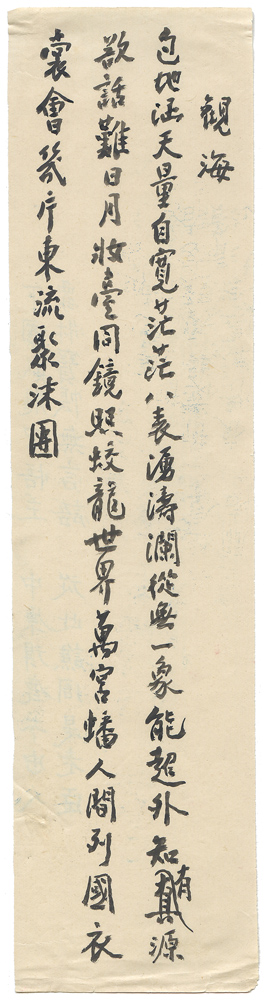 觀海
包地涵天量自寬茫茫八表湧濤瀾從無一象能超外知有真源
欲話難日月妝臺同鏡照蛟龍世界萬宮蟠人間列國衣
裳會幾片東流聚沫團